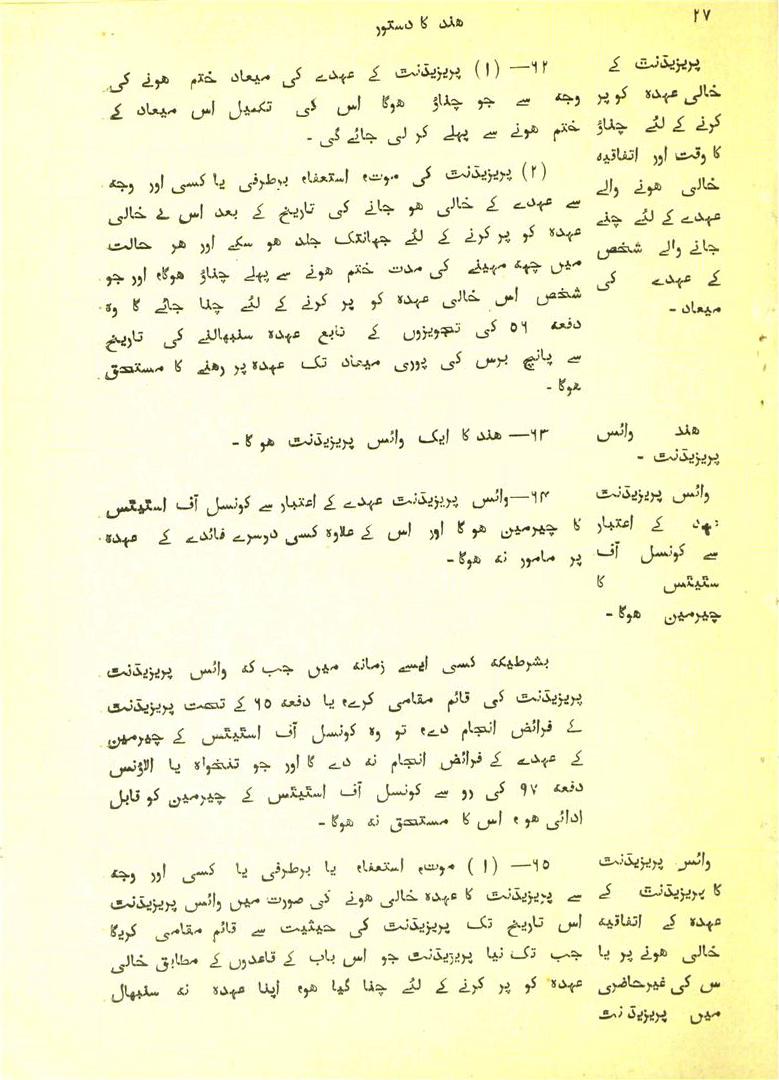 ۲۷
هند کا دستور
پریزیڈنٹ کے
خالی عہدہ کو پر
کرنے کے لئے چناؤ
کا وقت اور اتفاقیہ
خالی ہونے والے
عہدے کے لئے چنے
جانے والے شخص
کے عہدے کی
میعاد -
۶۲— (۱) پریزیڈنٹ کے عہدے کی میعاد ختم ہونے کی
وجہ سے جو چناؤ ہوگا اس کی تکمیل اس میعاد کے
ختم ہونے سے پہلے کر لی جائے گی -
(۲) پریزیڈنٹ کی موت، استعفاء برطرفی یا کسی اور وجہ
سے عہدے کے خالی ہو جانے کی تاریخ کے بعد اس خالی
عہدہ کو پر کرنے کے لئے جہانتک جلد ہو سکے اور ہر حالت
میں چھہ مہینے کی مدت ختم ہونے سے پہلے چناؤ ہوگا، اور جو
شخص اس خالی عہدہ کو پر کرنے کے لئے چنا جائے گا وہ
دفعہ ۵۶ کی تجویزوں کے تابع عہدہ سنبھالنے کی تاریخ
سے پانچ برس کی پوری میعاد تک عہدہ پر رہنے کا مستحق
ہوگا -
ہند وائس
پریزیڈنٹ -
۶۳— ہند کا ایک وائس پریزیڈنٹ ہو گا -
وائس پریزیڈنٹ
کے اعتبار
سے کونسل آف
سٹیٹس کا
چیرمین ہوگا -
۶۴—وائس پریزیڈنٹ عہدے کے اعتبار سے کونسل آف اسٹیٹس
کا چیرمین ہو گا اور اس کے علاوہ کسی دوسرے فائدے کے عہدہ
پر مامور نہ ہوگا -
بشرطیکہ کسی ایسے زمانہ میں جب کہ وائس پریزیڈنٹ
پریزیڈنٹ کی قائم مقامی کرے، یا دفعہ ۶۵ کے تحت پریزیڈنٹ
کے فرائض انجام دے، تو وہ کونسل آف اسٹیٹس کے چیرمین
کے عہدے کے فرائض انجام نہ دے گا اور جو تنخواہ یا الاؤنس
دفعہ ۹۷ کی رو سے کونسل آف اسٹیٹس کے چیرمین کو قابل
ادائی ہو، اس کا مستحق نہ ہوگا -
وائس پریزیڈنٹ
کا پریزیڈنٹ کے
عہدہ کے اتفاقیہ
خالی ہونے پر یا
س کی غیرحاضری
میں پریزیڈنٹ
۶۵— (۱) موت، استعفاء یا برطرفی یا کسی اور وجہ
سے پریزیڈنٹ کا عہدہ خالی ہونے کی صورت میں وائس پریزیڈنٹ
اس تاریخ تک پریزیڈنٹ کی حیثیت سے قائم مقامی کریگا
جب تک نیا پریزیڈنٹ جو اس باب کے قاعدوں کے مطابق خالی
عہدہ کو پر کرنے کے لئے چنا گیا ہو، اپنا عہدہ نہ سنبھال